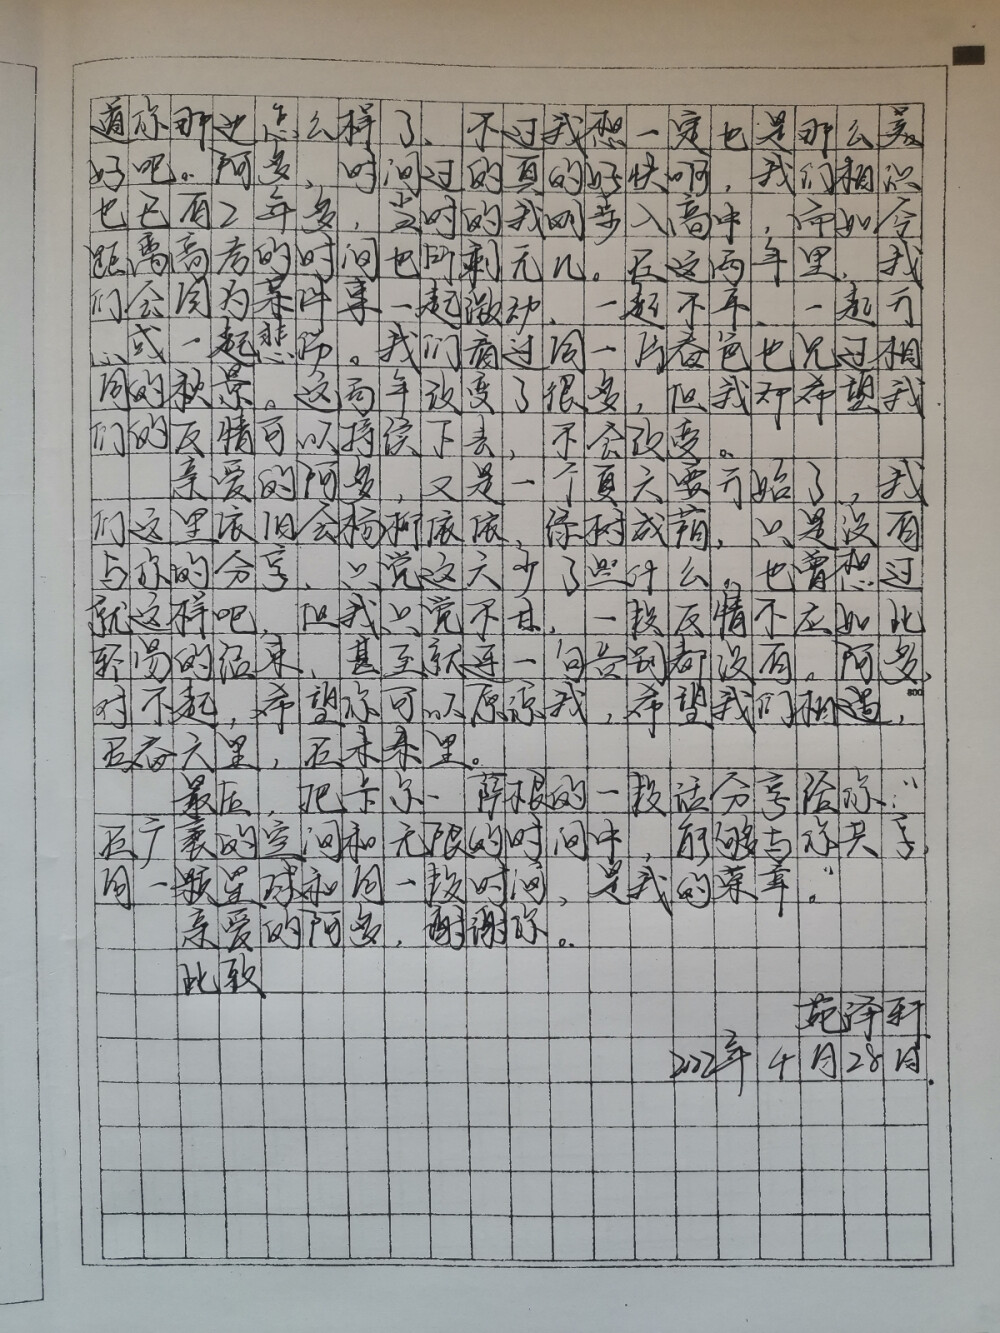 道你那边怎么样了、不过我想一定也是那么美
好吧。阿多，时间过的真的好快啊，我们相识
也已有2年多，当时的我刚步入高中，而如今
距离高考的时间也所剩无几。在这两年里，我
们会因为某件事一起激动、一起不平、一起开
心或一起悲伤。我们看过同一片春色也见过相
同的秋景。这两年改变了很多，但我却希望我
们的友情可以持续下去，不会改变。
亲爱的阿多，又是一个夏天要开始了，我
们这里依旧会杨柳依依，绿树成荫，只是没有
与你的分享，只觉这天少了些什么。也曾想过
就这样吧，但我只觉不甘，一段友情不应如此
轻易的结束，甚至就连一句告别都没有。阿多，
对不起，希望你可以原谅我，希望我们相遇，
800
在春天里，在未来里。
最后，把卡尔·萨根的一段话分享给你：“
在广袤的空间和无限的时间中，能够与你共享
同一颗星球和同一段时间，是我的荣幸。”
亲爱的阿多，谢谢你。
此致
苑泽轩
2022年4月28日.